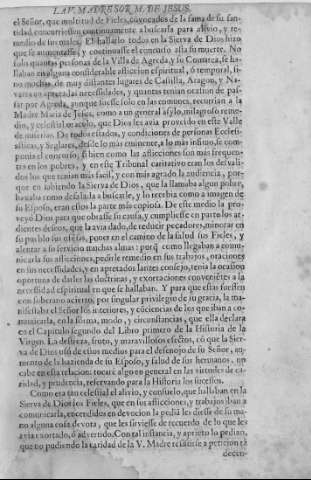 LA V. MADRE SOR M. DE JESUS.
el Señor, que multitud de Fieles, convocados de la fama de su san-
tidad, concurriessen continuamente à buscarla para alivio, y re-
medio de sus males. El hallarlo todos en la Sierva de Dios hizo
que se aumentasse, y continuasse el concurso asta su muerte. No
solo quantas personas de la Villa de Agreda y su Comarca, se ha-
llaban en alguna considerable afliccion espiritual, ò temporal, si-
no muchas de muy distantes lugares de Castilla, Aragon, y Na-
varra en apretadas necessidades, y quantas tenian ocasion de pas-
sar por Agreda, aunque fuesse solo en las comunes, recurrian à la
Madre Maria de Jesus, como à un general asylo, milagroso reme-
dio, y celestial oraculo, que Dios les avia proveido en este Valle
de miserias. De todos estados, y condiciones de personas Ecclesi-
asticas, y Seglares, desde lo mas eminente, à lo mas infimo, se com-
ponia el concurso, si bien como las aflicciones son mas frequen-
tes en los pobres, y en este Tribunal caritativo eran los desvali-
dos los que tenian mas facil, y con mas agrado la audiencia, por-
que en sabiendo la Sierva de Dios, que la llamaba algun pobre,
baxaba como desalada à buscarle, y lo recebia como à imagen de
su Esposo, eran estos la parte mas copiosa. De este medio la pro-
veyò Dios para que obrasse su causa, y cumpliesse en parte los ar-
dientes deseos, que la avia dado, de reducir pecadores, minorar en
su pueblo sus ofensas, poner en el camino de la salud sus Fieles, y
alentar à su servicio muchas almas: porq̃ como llegaban à comu-
nicarla sus aflicciones, pedirle remedio en sus trabajos, oraciones
en sus necessidades, y en apretados lances consejo, tenia la ocasion
oportuna de darles las doctrinas, y exortaciones conveniẽtes à la
necessidad espiritual en que se hallaban. Y para que estas fuessen
con soberano acierto, por singular privilegio de su gracia, la ma-
nifestaba el Señor los interiores, y cõciencias de los que iban à co-
municarla, en la forma, modo, y circunstancias, que ella declara
en el Capitulo segundo del Libro primero de la Historia de la
Virgen. La destreza, fruto, y maravillosos efectos, cõ que la Sier-
va de Dios usò de estos medios para el desenojo de su Señor, au-
mento de la hazienda de su Esposo, y salud de sus hermanos, no
cabe en esta relacion: tocarè algo en general en las virtudes de ca-
ridad, y prudencia, reservando para la Historia los sucessos.
Como era tan celestial el alivio, y consuelo, que hallaban en la
Sierva de Dios los Fieles, que en sus aflicciones, y trabajos iban à
comunicarla, encendidos en devocion la pediã les diesse de su ma-
no alguna cosa devota, que les sirviesse de recuerdo de lo que les
avia exortado, ò advertido. Con tal instancia, y aprieto lo pedian,
que no pudiendo la caridad de la V. Madre resistirse à peticion tã
decen-